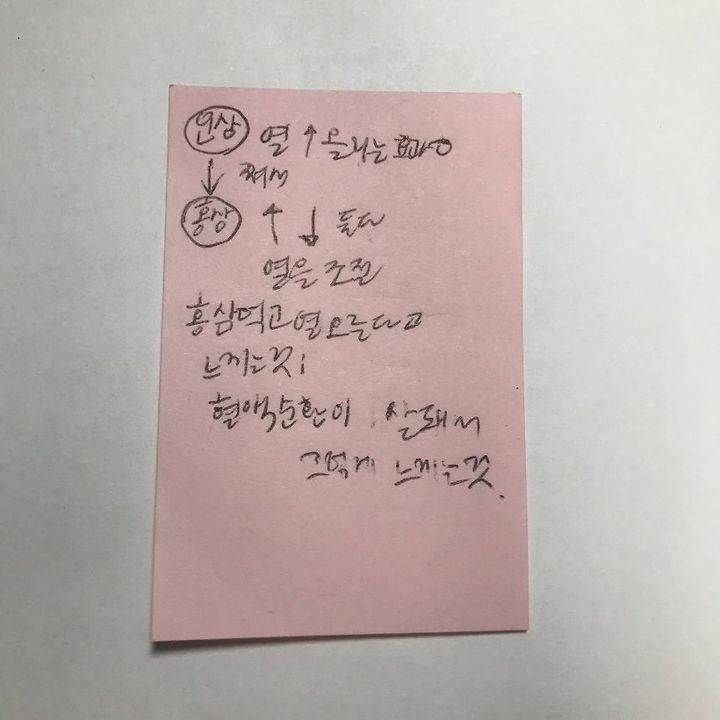 인삼 열 ↑ 올리는 효과 o
↓ 쪄서
홍삼 ↑ ↓ 둘다
열을 조절
홍삼먹고 열오른다고
느끼는것;
혈액순환이 잘돼서
그렇게 느끼는것.